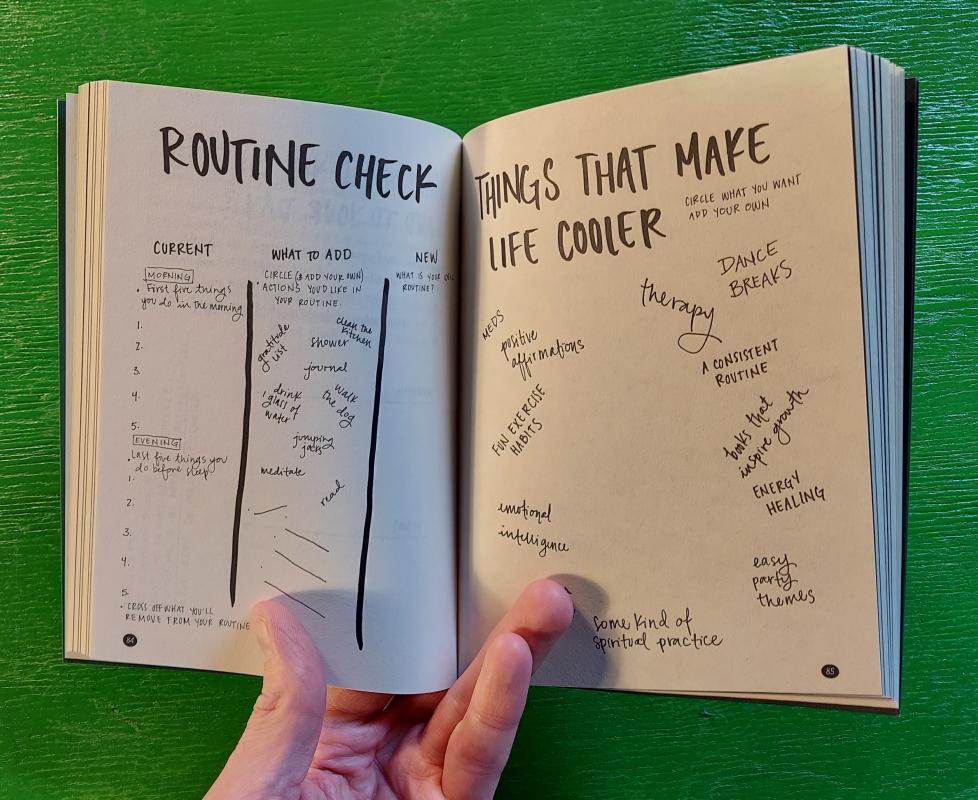 ROUTINE CHECK
CURRENT
MORNING
• First five things
you do in the morning
1.
2.
3.
4.
5.
EVENING
• Last five things you
do before sleep
1.
2.
3.
4.
5.
• CROSS OFF WHAT YOU'LL
REMOVE FROM YOUR ROUTINE
WHAT TO ADD
CIRCLE (& ADD YOUR OWN)
ACTIONS YOU'D LIKE IN
YOUR ROUTINE.
gratitude
list
clean the
kitchen
shower
journal
drink
1 glass of
water
walk
the dog
jumping
jacks
meditate
read
NEW
WHAT IS YOUR
ROUTINE?
84
THINGS THAT MAKE
LIFE COOLER
CIRCLE WHAT YOU WANT
ADD YOUR OWN
DANCE
BREAKS
therapy
MEDS
positive
affirmations
A CONSISTENT
ROUTINE
FUN EXERCISE
HABITS
books that
inspire growth
ENERGY
HEALING
emotional
intelligence
easy
party
themes
some kind of
spiritual practice
85